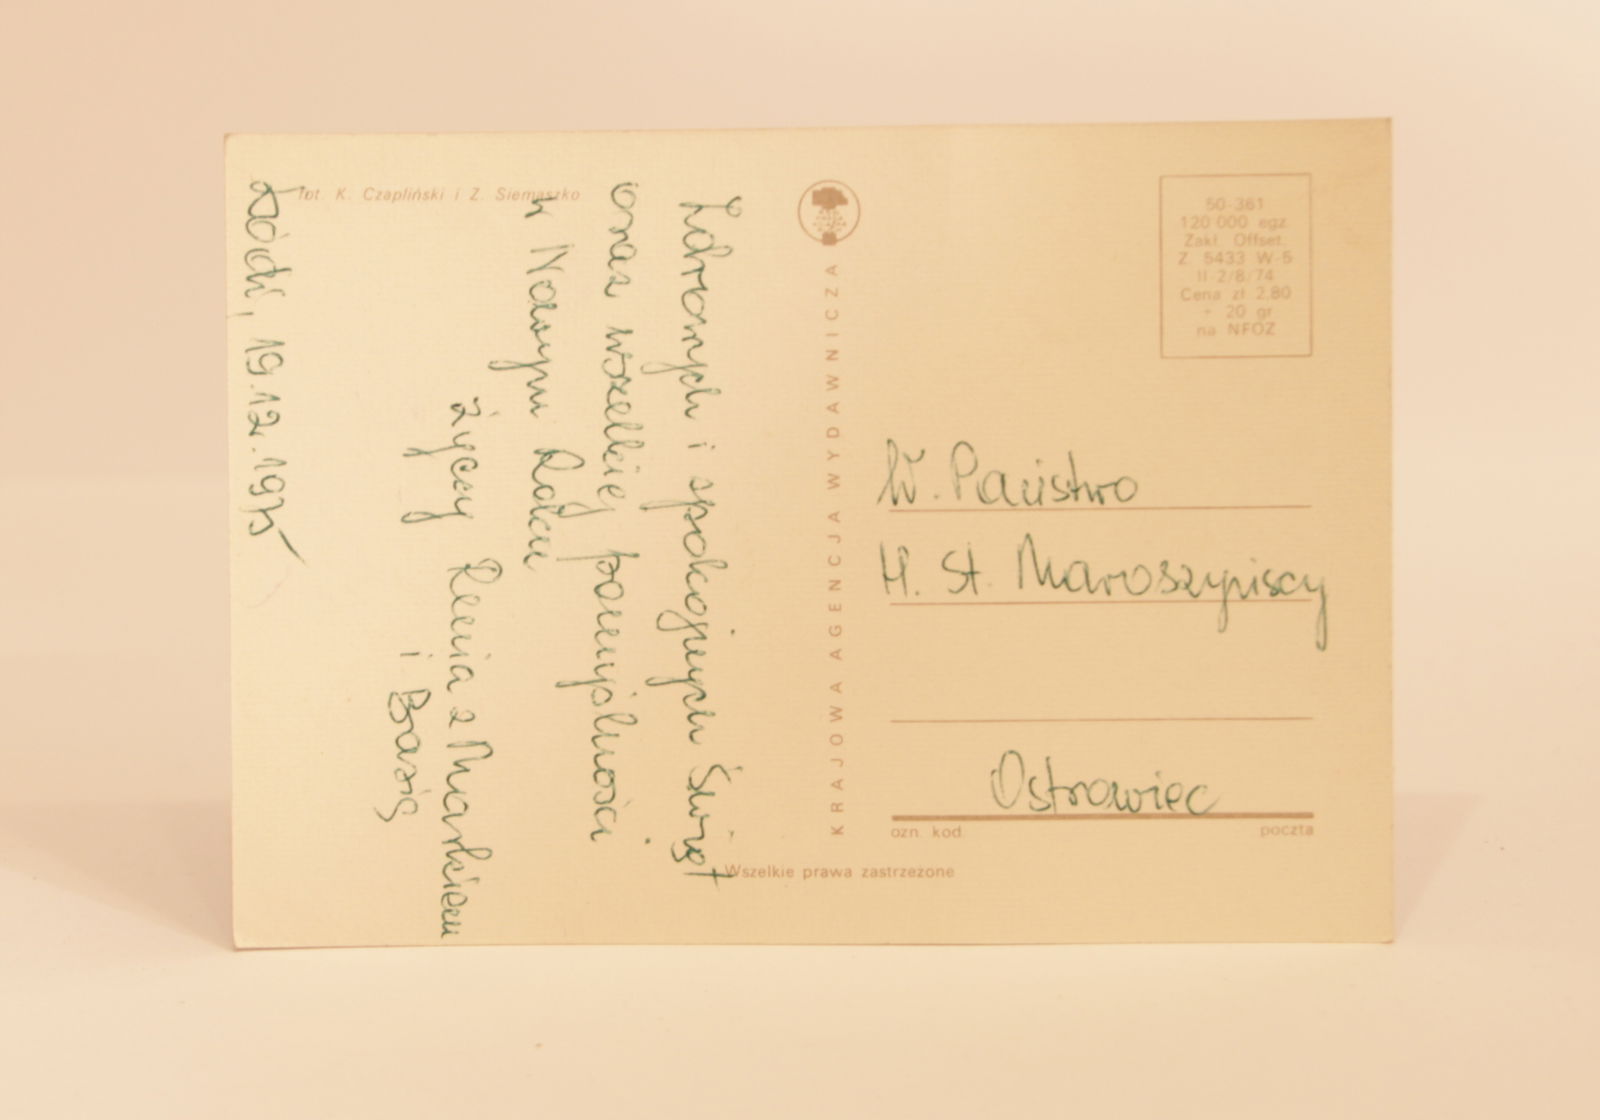 fot. K. Czapliński i Z. Siemaszko
Zdrowych i spokojnych Świąt
oraz wszelkiej pomyślności
w Nowym Roku
życzy Renia z Markiem
i Basię
Łódź, 19.12.1975
KRAJOWA AGENCJA WYDAWNICZA
50-361
120 000 egz.
Zakł. Offset.
Z. 5433 W-5
II-2/8/74
Cena zł 2,80
+ 20 gr
na NFOZ
W. Państwo
H. St. Maroszyńscy
Ostrowiec
ozn. kod poczta
Wszelkie prawa zastrzeżone